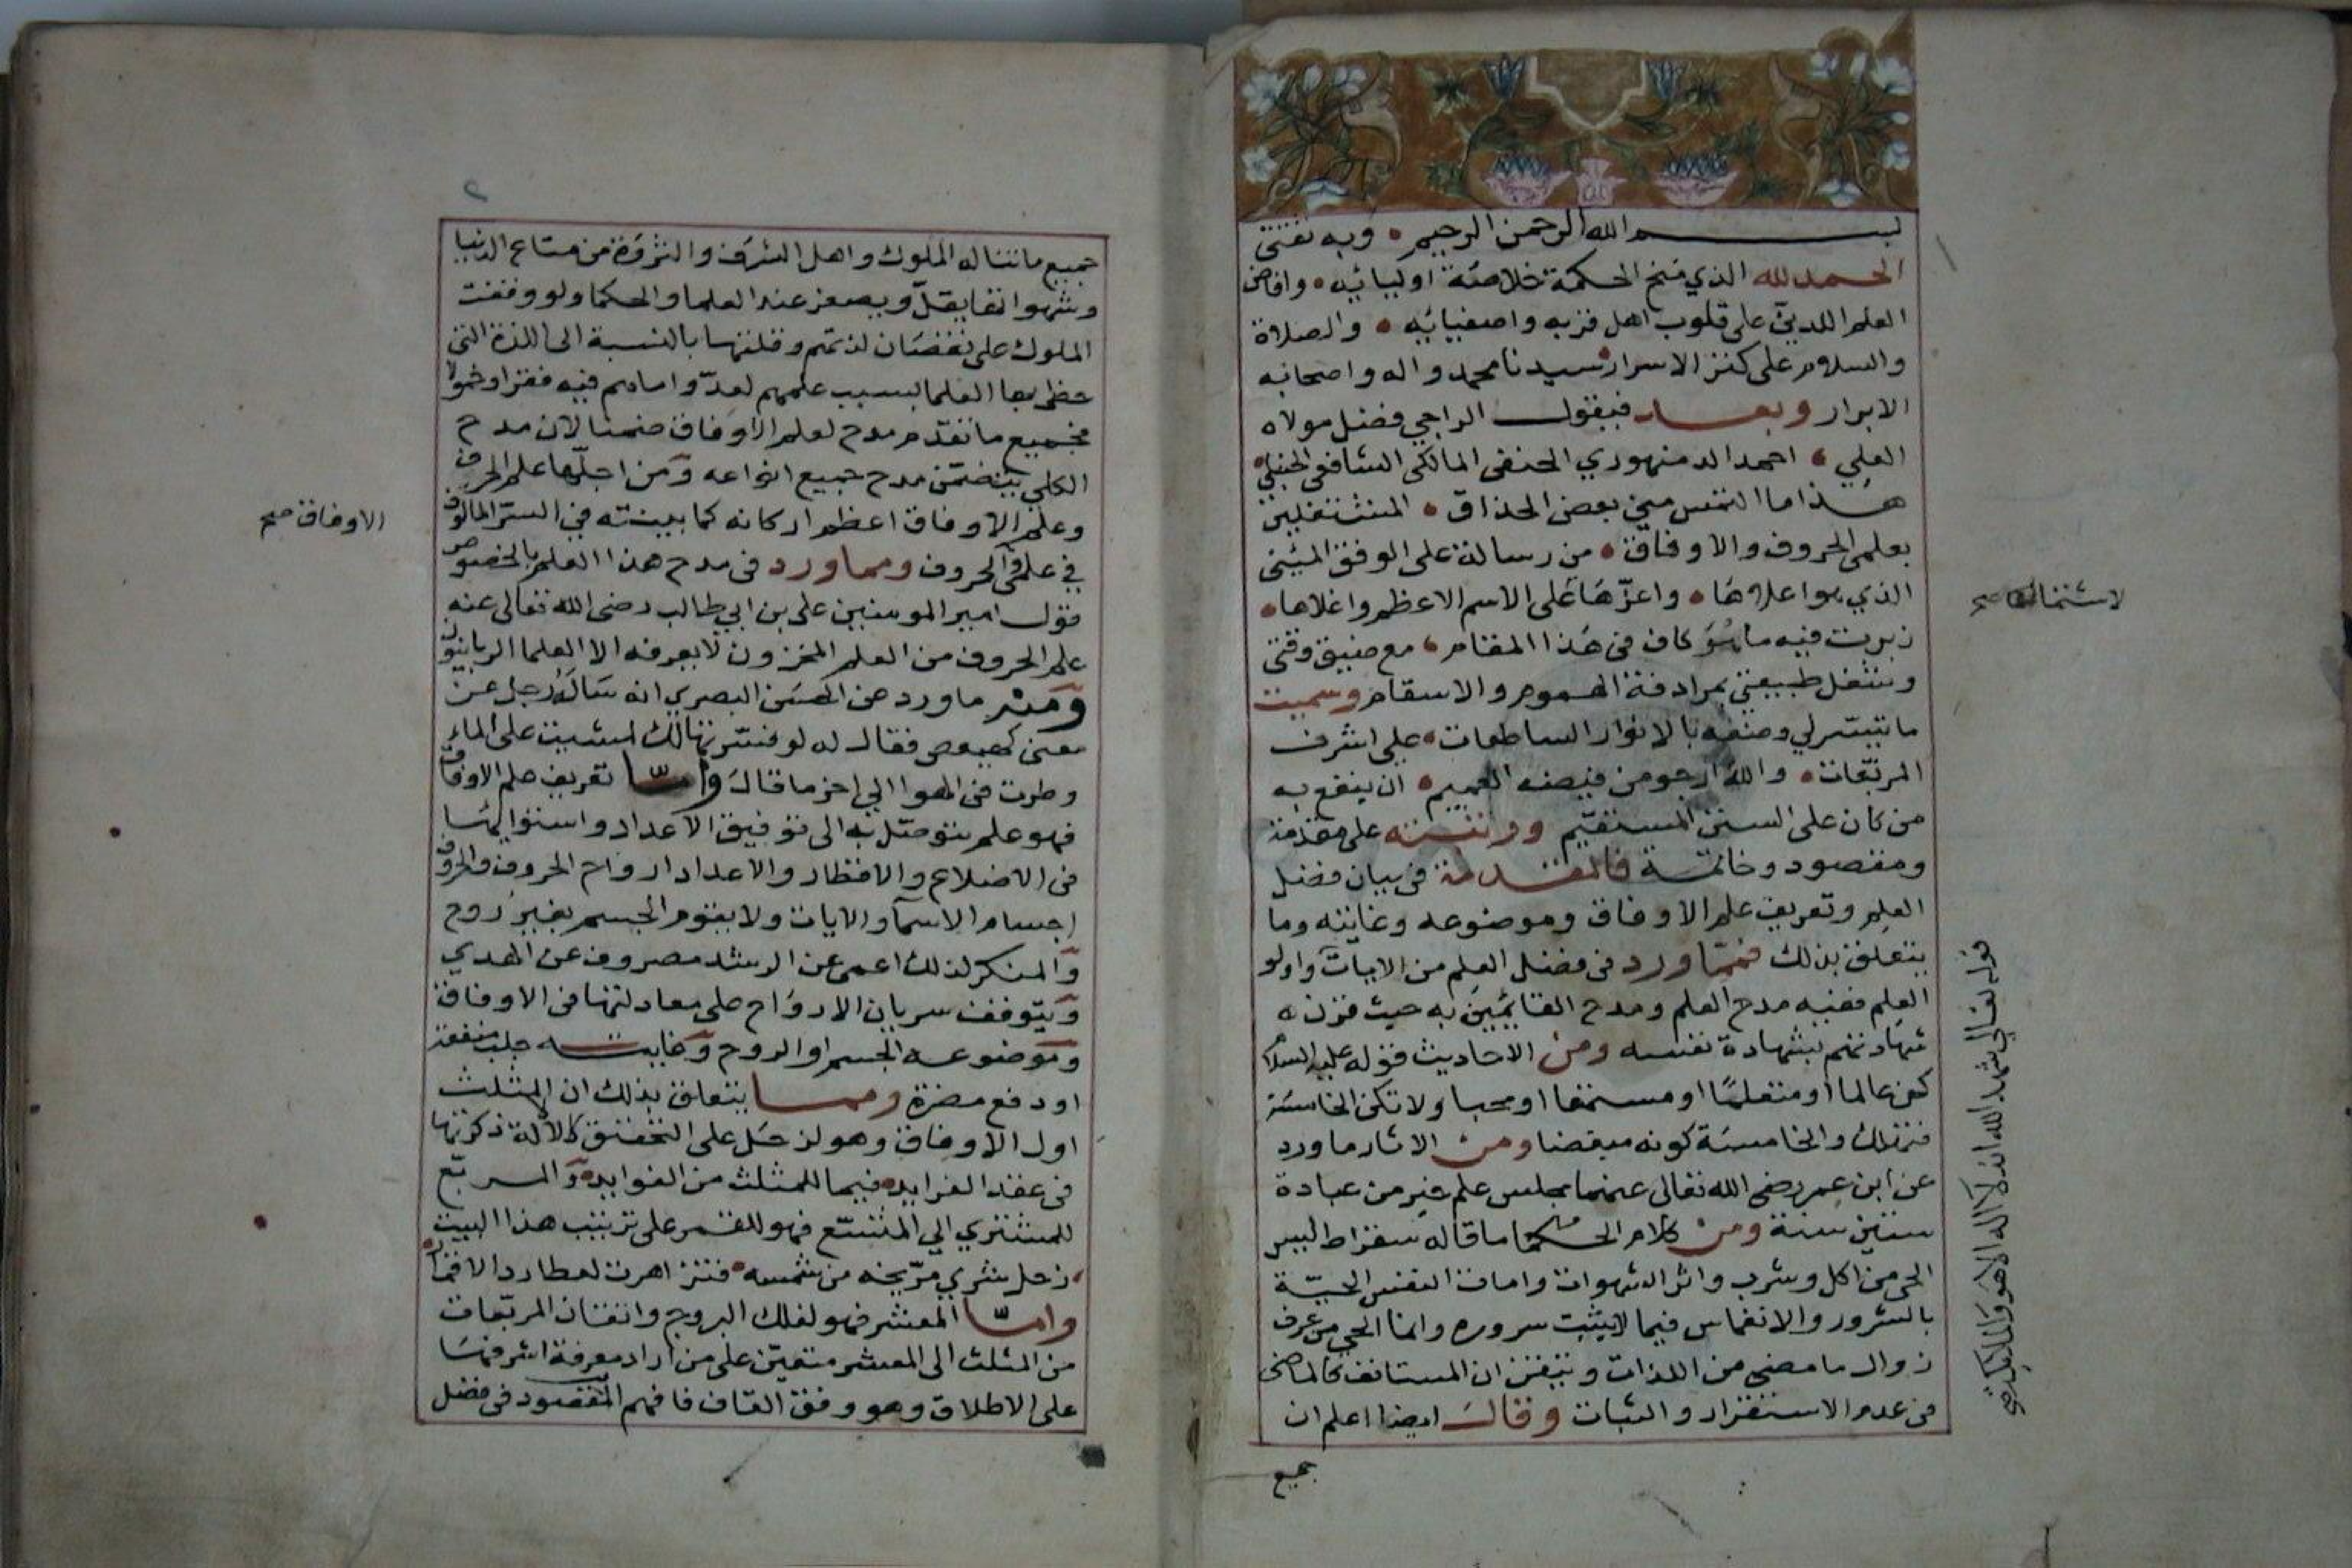 بسم الله الرحمن الرحيم • وبه نفتى
الحمد لله الذي منح الحكمة خلاصة اوليائه • وافاض
العلم اللدني على قلوب اهل قربه واصفيائه • والصلاة
والسلام على كنز الاسرار سيدنا محمد واله واصحابه
الابرار وبعد فيقول الراجي فضل مولاه
العلي • احمد الدمنهوري الحنفي المالكي الشافعي الحنبلي
هذا ما التمس مني بعض الحذاق • المشتغلين
بعلمي الحروف والاوفاق • من رسالة على الوفق المئيني
الذي هو اعلاها • واعزها على الاسم الاعظم واغلاها •
لاشتمالها صح
زبرت فيه ما هو كاف في هذا المقام • مع ضيق وقتي
وشغل طبيعتي بمرادفة الهموم والاسقام وسميت
ما تيسر لي وضعه بالانوار الساطعات • على اشرف
المربعات • والله ارجو من فيضه العميم • ان ينفع به
من كان على السنن المستقيم ورتبته على مقدمة
ومقصود وخاتمة فالمقدمة في بيان فضل
العلم وتعريف علم الاوفاق وموضوعه وغايته وما
يتعلق بذلك فمما ورد في فضل العلم من الايات واولو
العلم ففيه مدح العلم ومدح القايمين به حيث قرن
قوله تعالى شهد الله انه لا اله الا هو والملايكة صح
شهادتهم بشهادة نفسه ومن الاحاديث قوله عليه السلام
كن عالما او متعلما او مستمعا او محبا ولا تكن الخامسة
فتهلك والخامسة كونه مبغضا ومن الاثار ما ورد
عن ابن عمر رضي الله تعالى عنهما مجلس علم خير من عبادة
ستين سنة ومن كلام الحكما ما قاله سقراط ليس
الحي من اكل وشرب واثر الشهوات وامات النفس الحية
بالسرور والانغماس فيما لا يثبت سروره وانما الحي من عرف
زوال ما مضى من اللذات وتيقن ان المستانف كالماضي
في عدم الاستقرار والثبات وقال ايضا اعلم ان
جميع
٢
جميع ما تناله الملوك واهل الشرف والثروة من متاع الدنيا
وشهواتها يقل ويصغر عند العلما والحكما ولو وقفت
الملوك على نقصان لذتهم وقلتها بالنسبة الى اللذة التي
حظي بها العلما بسبب علمهم لعدوا ما هم فيه فقرا وخمولا
فجميع ما تقدم مدح لعلم الاوفاق ضمنا لان مدح
الكلي يتضمن مدح جميع انواعه ومن اجلها علم الحرف
وعلم الاوفاق اعظم اركانه كما بينته في السر المالوف
الاوفاق صح
في علمي الحروف ومما ورد في مدح هذا العلم بالخصوص
قول امير المومنين علي بن ابي طالب رضي الله تعالى عنه
علم الحروف من العلم المخزون لا يعرفه الا العلما الربانيون
ومنه ما ورد عن الحسن البصري انه ساله رجل عن
معنى كهيعص فقال له لو فسرتها لك لمشيت على الماء
وطرت في الهوا الى اخر ما قال واما تعريف علم الاوفاق
فهو علم يتوصل به الى توفيق الاعداد واستوايها
في الاضلاع والاقطار والاعداد ارواح الحروف والحروف
اجسام الاسما والايات ولا يقوم الجسم بغير روح
والمنكر لذلك اعمى عن الرشد مصروف عن الهدي
ويتوقف سريان الارواح على معادلتها في الاوفاق
وموضوعه الجسم او الروح وغايته جلب منفعة
او دفع مضرة ومما يتعلق بذلك ان المثلث
اول الاوفاق وهو لزحل على التحقيق لادلة ذكرتها
في عقد الفرايد فيما للمثلث من الفوايد والمربع
للمشتري الى المتسع فهو للقمر على ترتيب هذا البيت
زحل شرى مريخه من شمسه • فتزاهرت لعطارد الاقمار
واما المعشر فهو لفلك البروج واتقان المربعات
من المثلث الى المعشر متعين على من اراد معرفة اشرفها
على الاطلاق وهو وفق القاف فافهم المقصود في فضل